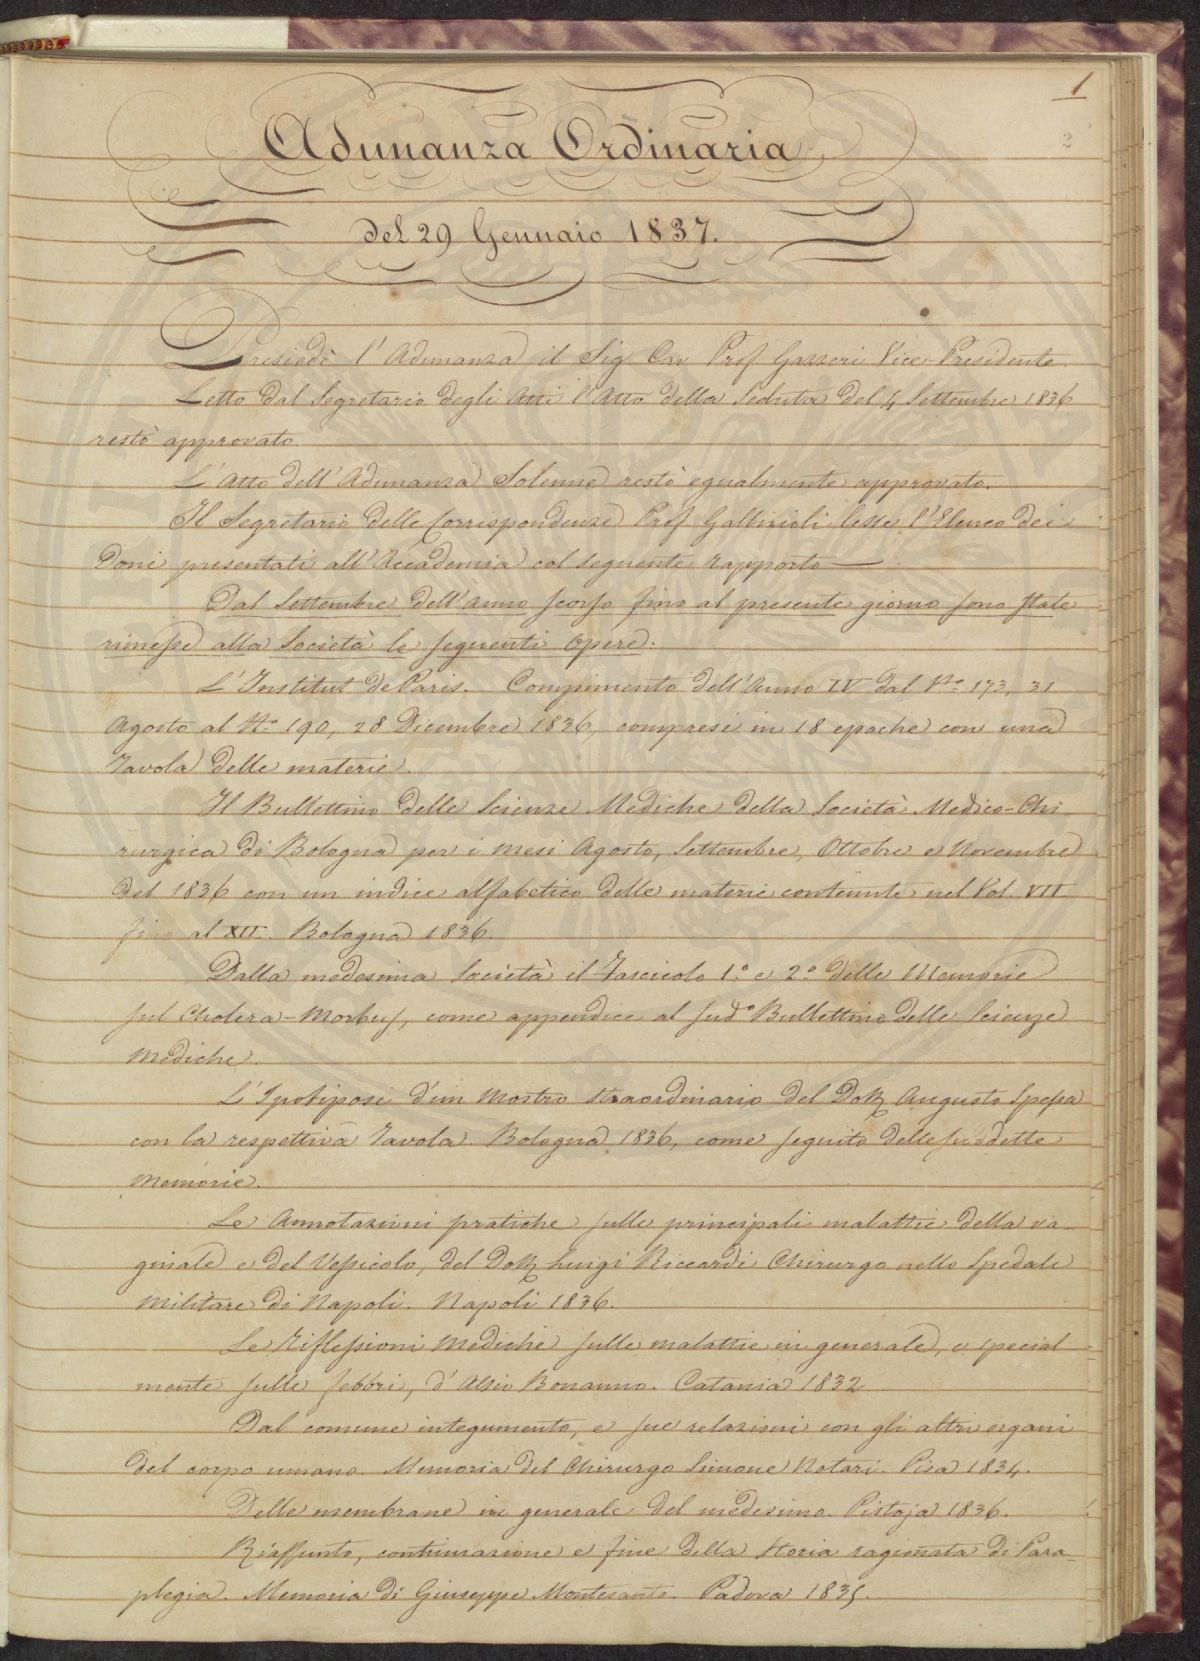 1
2
Adunanza Ordinaria
del 29 Gennaio 1837.
Presiedè l'Adunanza il Sig. Cav. Prof. Gazzeri Vice-Presidente
Letto dal Segretario degli Atti l'Atto della Seduta del 4 Settembre 1836
restò approvato.
L'Atto dell'Adunanza Solenne restò egualmente approvato.
Il Segretario delle Corrispondenze Prof. Gallizioli lesse l'Elenco dei
Doni presentati all'Accademia col seguente rapporto
Dal Settembre dell'anno scorso fino al presente giorno sono state
rimesse alla Società le seguenti Opere:
L'Institut de Paris. Compimento dell'Anno IV dal No. 173, 31
Agosto al No. 190, 28 Dicembre 1836, compresi in 18 epoche con una
Tavola delle materie.
Il Bullettino delle Scienze Mediche della Società Medico-Chi
rurgica di Bologna per i mesi Agosto, Settembre, Ottobre e Novembre
del 1836 con un indice alfabetico delle materie contenute nel Vol. VII
fino al XII. Bologna 1836.
Dalla medesima Società il Fascicolo 1.º e 2.º delle Memorie
sul Cholera-Morbus, come appendice al sudº Bullettino delle Scienze
Mediche.
L'Ipotiposi d'un Mostro straordinario del Dott. Augusto Spessa
con la respettiva Tavola. Bologna 1836, come seguito delle suddette
Memorie.
Le Annotazioni pratiche sulle principali malattie della va-
ginale e del Vessicolo, del Dott. Luigi Riccardi Chirurgo nello Spedale
Militare di Napoli. Napoli 1836.
Le Riflessioni Mediche sulle malattie in generale, e special
mente sulle febbri, d'Alsio Bonanno. Catania 1832.
Dal comune integumento, e sue relazioni con gli altri organi
del corpo umano. Memoria del Chirurgo Simone Notari. Pisa 1834.
Delle membrane in generale del medesimo. Pistoja 1836.
Riassunto, continuazione e fine della Storia ragionata di Para-
plegia. Memoria di Giuseppe Montesanto. Padova 1835.